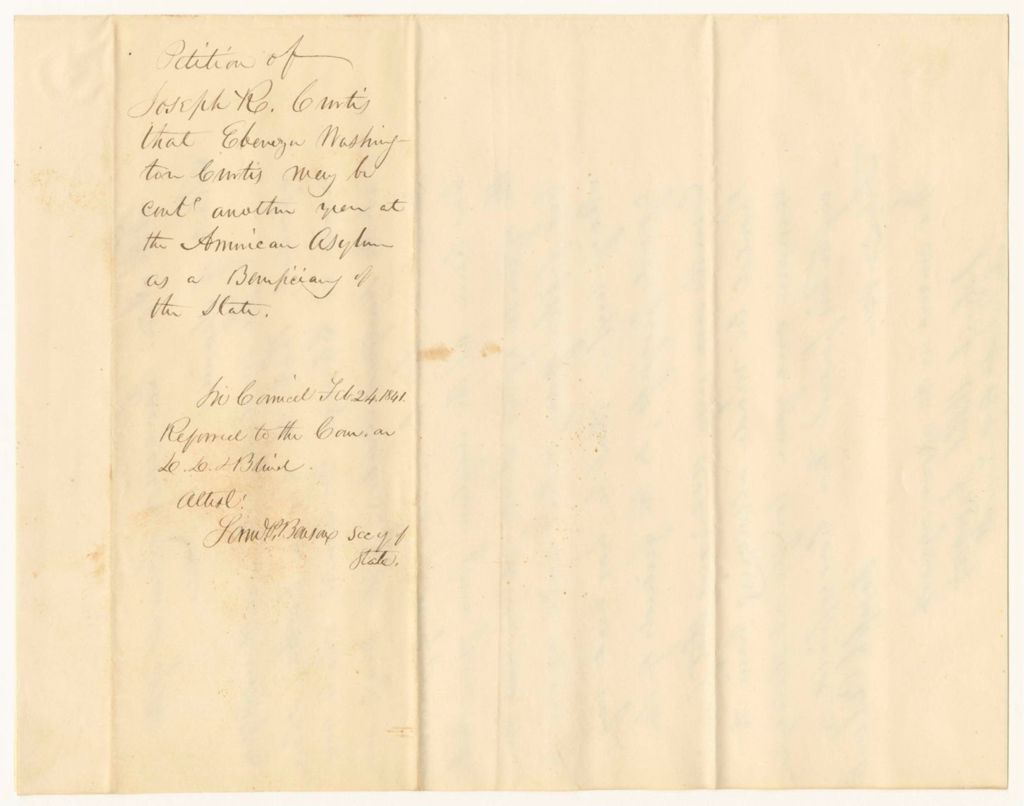 Petition of
Joseph R. Curtis
that Ebenezer Washing-
ton Curtis may be
contd another year at
the American Asylum
as a Beneficiary of
the State.
In Council Feb 24, 1841.
Referred to the Com. on
D. D. & Blind.
Attest:
Saml P. Benson Secy of
State.